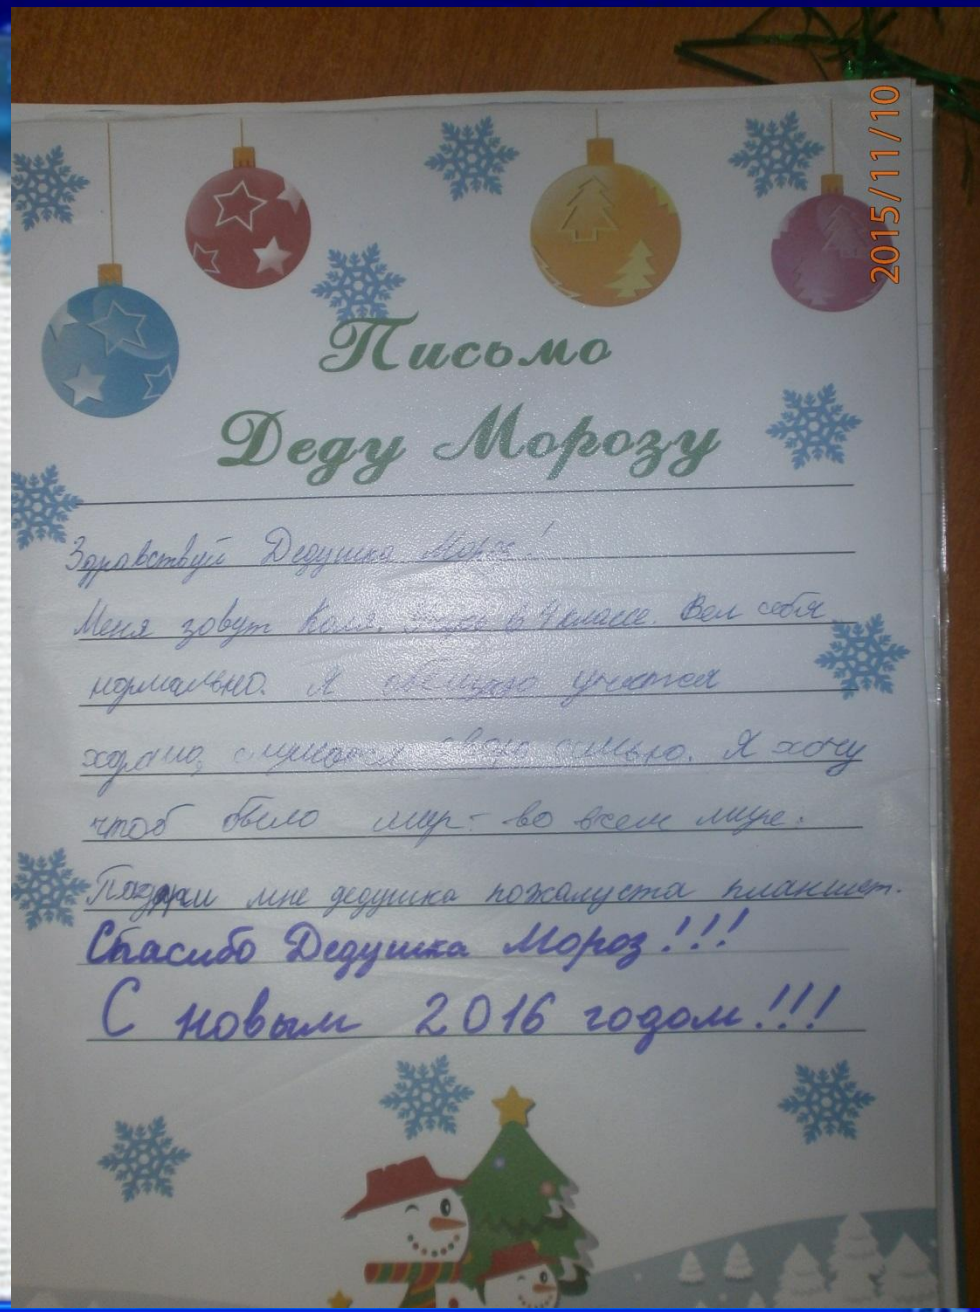 2015/11/10
Письмо
Деду Морозу
Здравствуй Дедушка Мороз!
Меня зовут Коля. Учусь в 4 классе. Вел себя
нормально. Я обещаю учится
хорошо, свою семью. Я хочу
чтоб было мир - во всем мире.
Подари мне дедушка пожалуста планшет.
Спасибо Дедушка Мороз!!!
С новым 2016 годом!!!